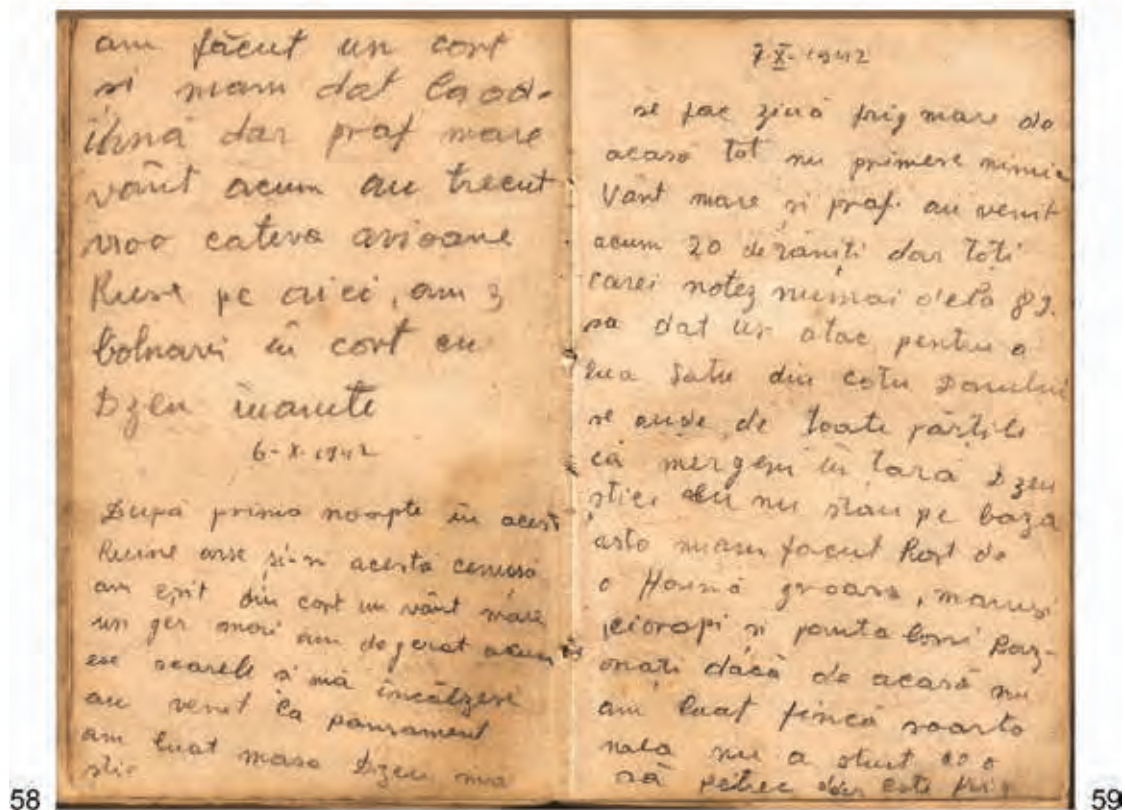 am făcut un cort
si mam dat la od-
ihnă dar praf mare
vânt acum au trecut
vroo cateva avioane
Ruse pe aici, am 3
bolnavi in cort cu
Dzeu inainte
6-X-1942
După prima noapte in aceste
Ruine arse si-n acesta cenusă
am eşit din cort un vânt mare
un ger mari am degerat acum
ese soarele si mă incălzesc
au venit la pansament
am luat masa Dzeu ma
stie
58
7-X-1942
se fac ziuă frig mare de
acasă tot nu primesc nimic
Vânt mare si praf. au venit
acum 20 de răniti dar toti
carei notez numai dela 89.
sa dat un atac pentru a
lua Satu din cotu Donului
se aude de toate părtile
că mergem in tară Dzeu
stie eu nu stau pe baza
asta miam facut Rost de
o Haină groasă, manusi
ciorapi si
dăcă de acasă nu
am luat fincă soarta
nu a
să petrec dar este frig
59